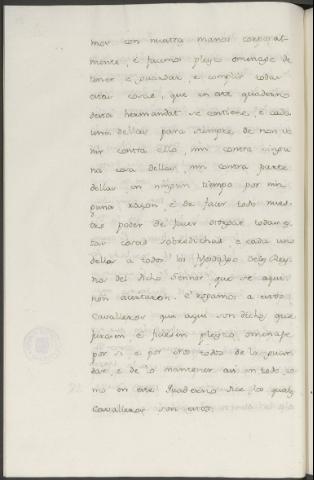 mos con nuestras manos corporal-
mente, é facemos pleyto omenage de
tener é guardar, e complir todas
estas cosas, que en este quaderno
desta hermandat se contiene, é cada
una dellas para siempre de non ve
nir contra ello, nin contra ningu
na cosa dellas, nin contra parte
dellas en ningun tiempo por nin
guna razon, é de facer todo nues
tro poder de facer otorgar todas es
tas cosas sobredichas, e cada una
dellas a todos los fijosdalgo de los Rey
nos del dicho Sennor que se aqui
non acertaron. E rogamos a estos
Cavalleros que aqui son dichos que
jurasen é fiziesen pleyto omenage
por si, e por otros todos de lo guar
dar, é de lo mantener asi en todo co
mo en este Quaderno dice, los quales
Cavalleros son estos.